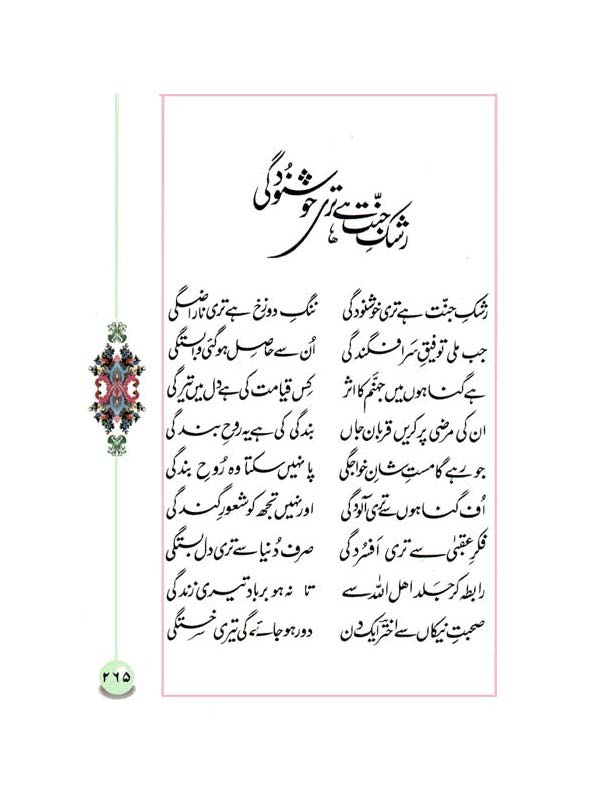 رشکِ جنّت ہے تری خوشنودگی
رشکِ جنّت ہے تری خوشنودگی ننگِ دوزخ ہے تری ناراضگی
جب ملی توفیقِ سرافگندگی اُن سے حاصل ہوگئی وابستگی
ہے گناہوں میں جہنّم کا اثر کِس قیامت کی ہے دل میں تیرگی
ان کی مرضی پر کریں قربان جاں بندگی کی ہے یہ روحِ بندگی
جو رہے گا مستِ شانِ خواجگی پا نہیں سکتا وہ رُوحِ بندگی
اُف گناہوں سے تری آلودگی اور نہیں تجھ کو شعورِ گندگی
فکرِ عقبیٰ سے تری افسردگی صرف دُنیا سے تری دل بستگی
رابطہ کر جلد اھل اللہ سے تا نہ ہو برباد تیری زندگی
صحبتِ نیکاں سے اخترؔ ایک دن دور ہو جائے گی تیری خستگی
۲۶۵